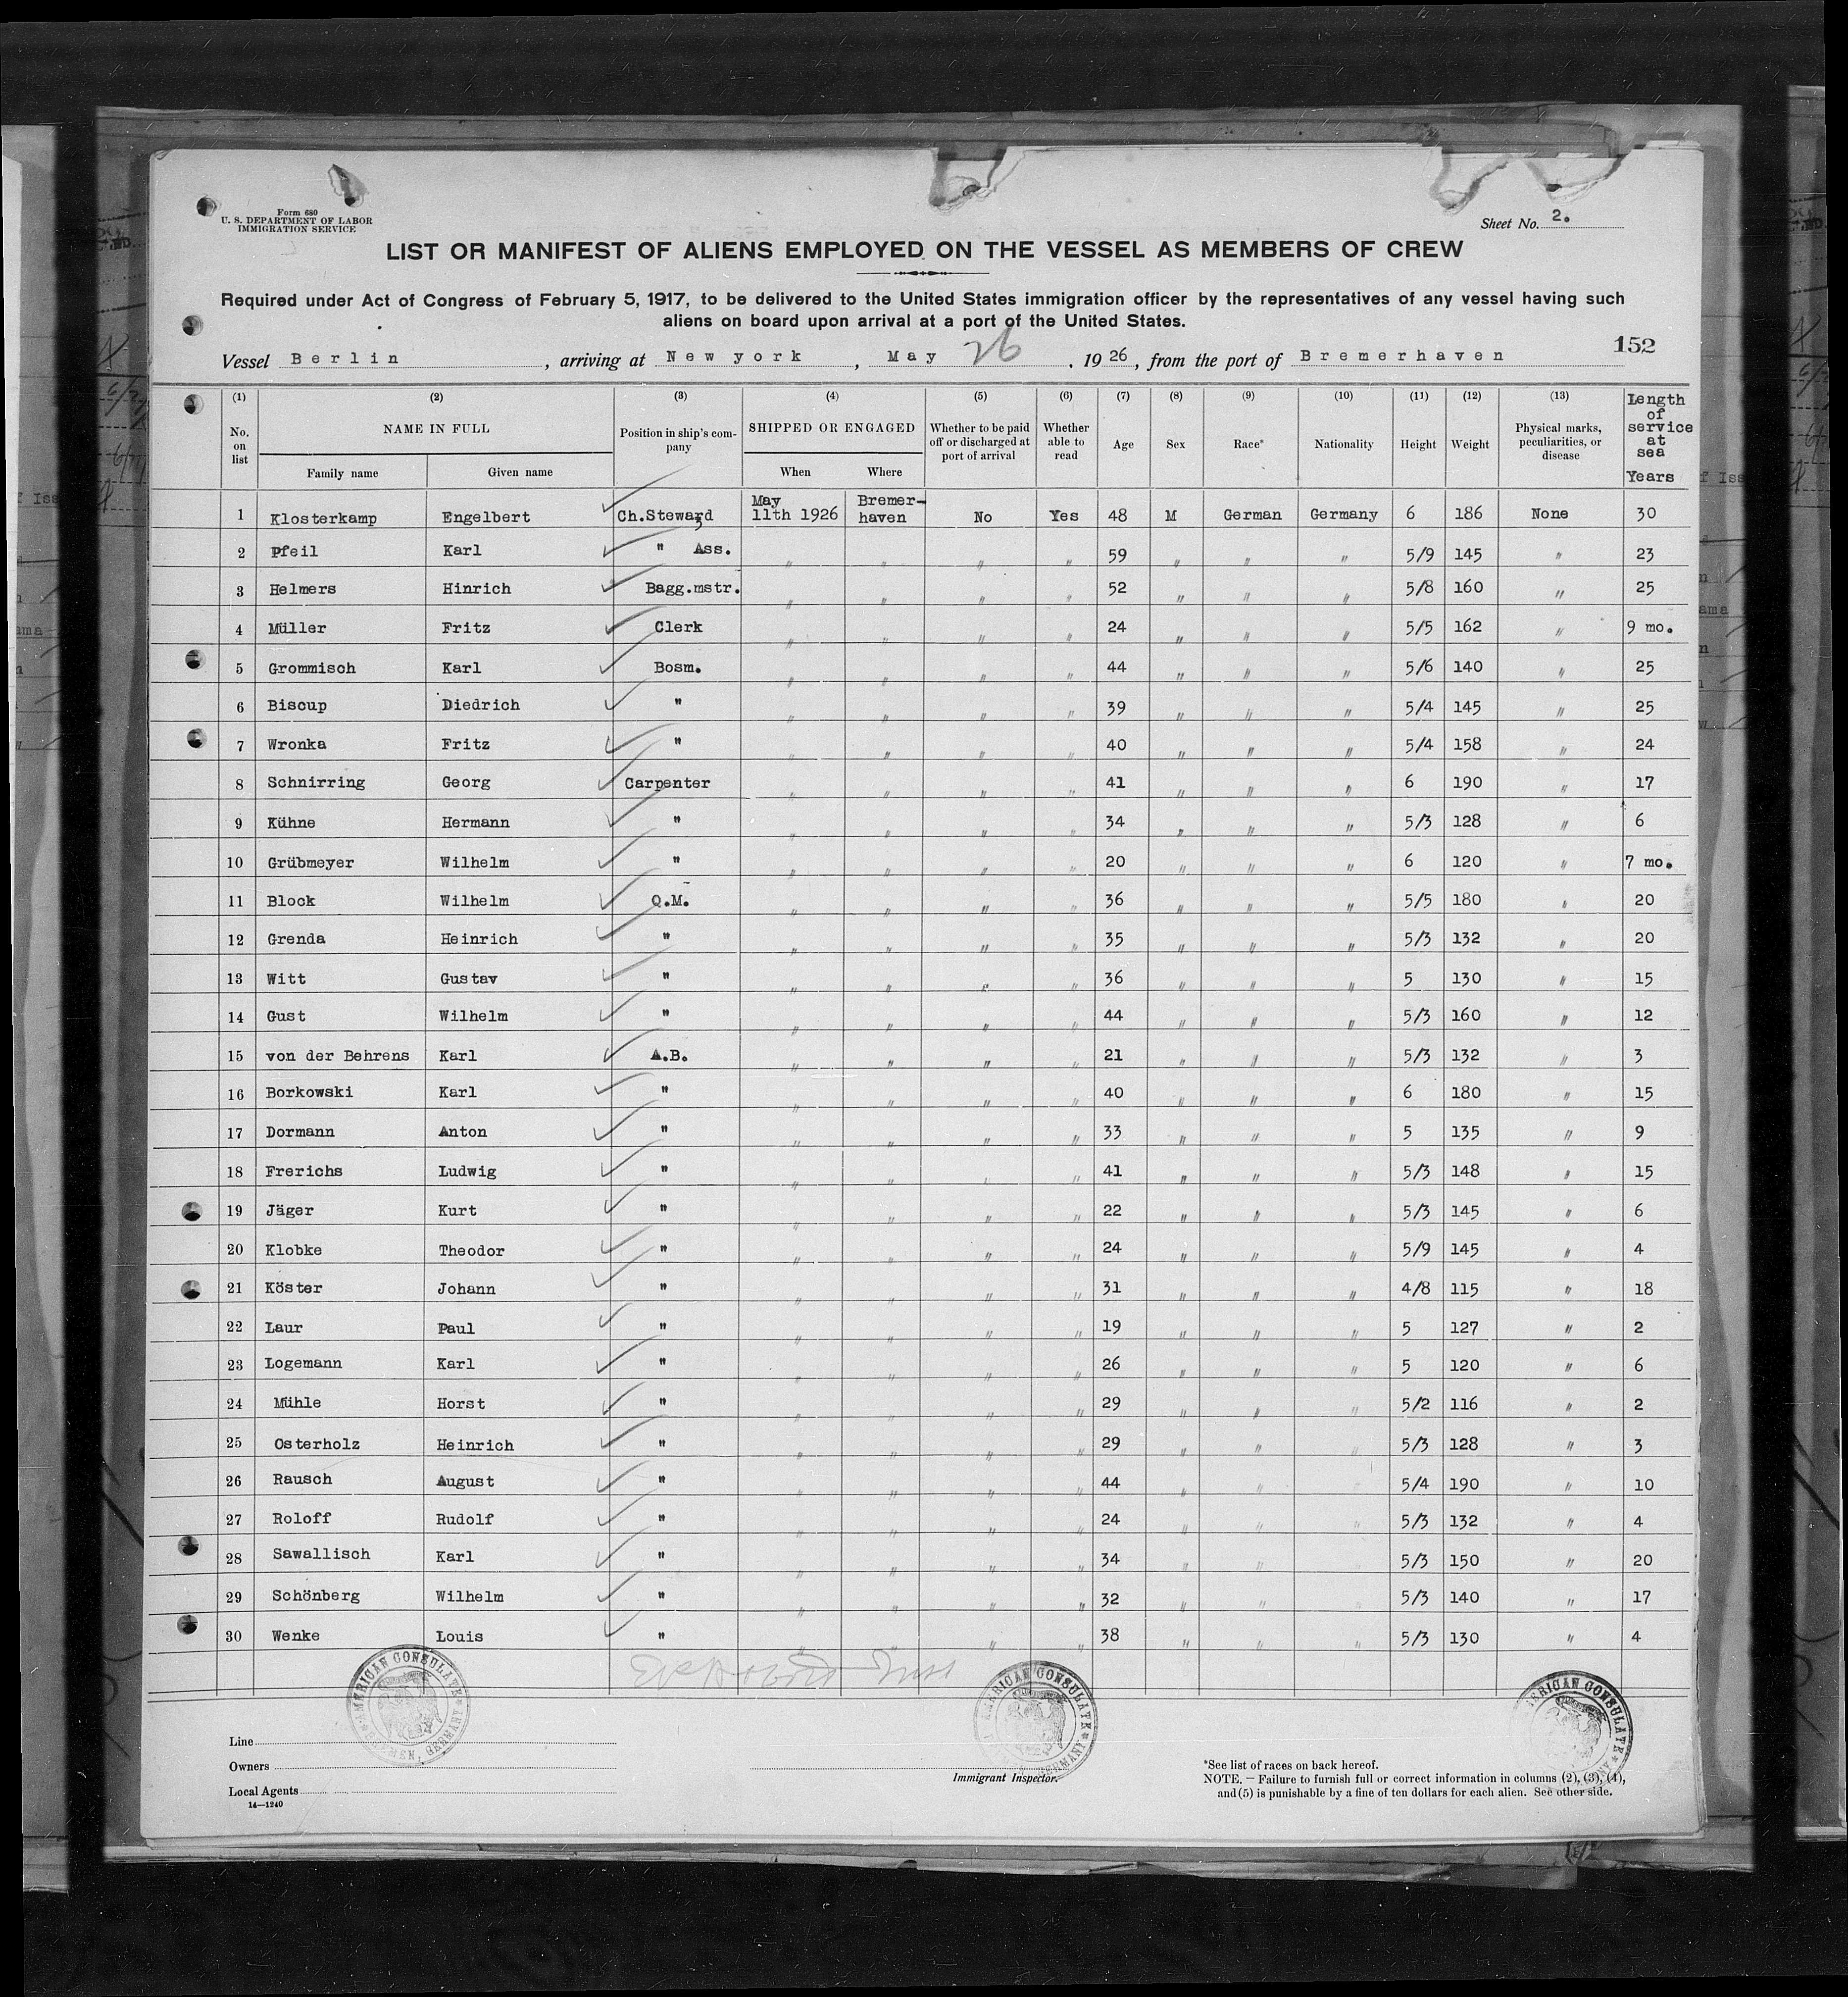 Form 680
U. S. DEPARTMENT OF LABOR
IMMIGRATION SERVICE
Sheet No. 2.
LIST OR MANIFEST OF ALIENS EMPLOYED ON THE VESSEL AS MEMBERS OF CREW
Required under Act of Congress of February 5, 1917, to be delivered to the United States immigration officer by the representatives of any vessel having such
aliens on board upon arrival at a port of the United States.
152
Vessel Berlin, arriving at New york, May 26, 1926, from the port of Bremerhaven
(1) (2) (3) (4) (5) (6) (7) (8) (9) (10) (11) (12) (13) Length of service at sea Years
No. on list NAME IN FULL Position in ship's company SHIPPED OR ENGAGED Whether to be paid off or discharged at port of arrival Whether able to read Age Sex Race* Nationality Height Weight Physical marks, peculiarities, or disease
Family name Given name When Where
1 Klosterkamp Engelbert Ch.Steward May 11th 1926 Bremer-haven No Yes 48 M German Germany 6 186 None 30
2 Pfeil Karl " Ass. " " " " 59 " " " 5/9 145 " 23
3 Helmers Hinrich Bagg.mstr. " " " " 52 " " " 5/8 160 " 25
4 Müller Fritz Clerk " " " " 24 " " " 5/5 162 " 9 mo.
5 Grommisch Karl Bosm. " " " " 44 " " " 5/6 140 " 25
6 Biscup Diedrich " " " " " 39 " " " 5/4 145 " 25
7 Wronka Fritz " " " " " 40 " " " 5/4 158 " 24
8 Schnirring Georg Carpenter " " " " 41 " " " 6 190 " 17
9 Kühne Hermann " " " " " 34 " " " 5/3 128 " 6
10 Grübmeyer Wilhelm " " " " " 20 " " " 6 120 " 7 mo.
11 Block Wilhelm Q.M. " " " " 36 " " " 5/5 180 " 20
12 Grenda Heinrich " " " " " 35 " " " 5/3 132 " 20
13 Witt Gustav " " " " " 36 " " " 5 130 " 15
14 Gust Wilhelm " " " " " 44 " " " 5/3 160 " 12
15 von der Behrens Karl A.B. " " " " 21 " " " 5/3 132 " 3
16 Borkowski Karl " " " " " 40 " " " 6 180 " 15
17 Dormann Anton " " " " " 33 " " " 5 135 " 9
18 Frerichs Ludwig " " " " " 41 " " " 5/3 148 " 15
19 Jäger Kurt " " " " " 22 " " " 5/3 145 " 6
20 Klobke Theodor " " " " " 24 " " " 5/9 145 " 4
21 Köster Johann " " " " " 31 " " " 4/8 115 " 18
22 Laur Paul " " " " " 19 " " " 5 127 " 2
23 Logemann Karl " " " " " 26 " " " 5 120 " 6
24 Mühle Horst " " " " " 29 " " " 5/2 116 " 2
25 Osterholz Heinrich " " " " " 29 " " " 5/3 128 " 3
26 Rausch August " " " " " 44 " " " 5/4 190 " 10
27 Roloff Rudolf " " " " " 24 " " " 5/3 132 " 4
28 Sawallisch Karl " " " " " 34 " " " 5/3 150 " 20
29 Schönberg Wilhelm " " " " " 32 " " " 5/3 140 " 17
30 Wenke Louis " " " " " 38 " " " 5/3 130 " 4
AMERICAN CONSULATE GERMANY
AMERICAN CONSULATE GERMANY
AMERICAN CONSULATE
Line
Owners
Local Agents
14—1240
Immigrant Inspector.
*See list of races on back hereof.
NOTE. — Failure to furnish full or correct information in columns (2), (3), (4),
and (5) is punishable by a fine of ten dollars for each alien. See other side.